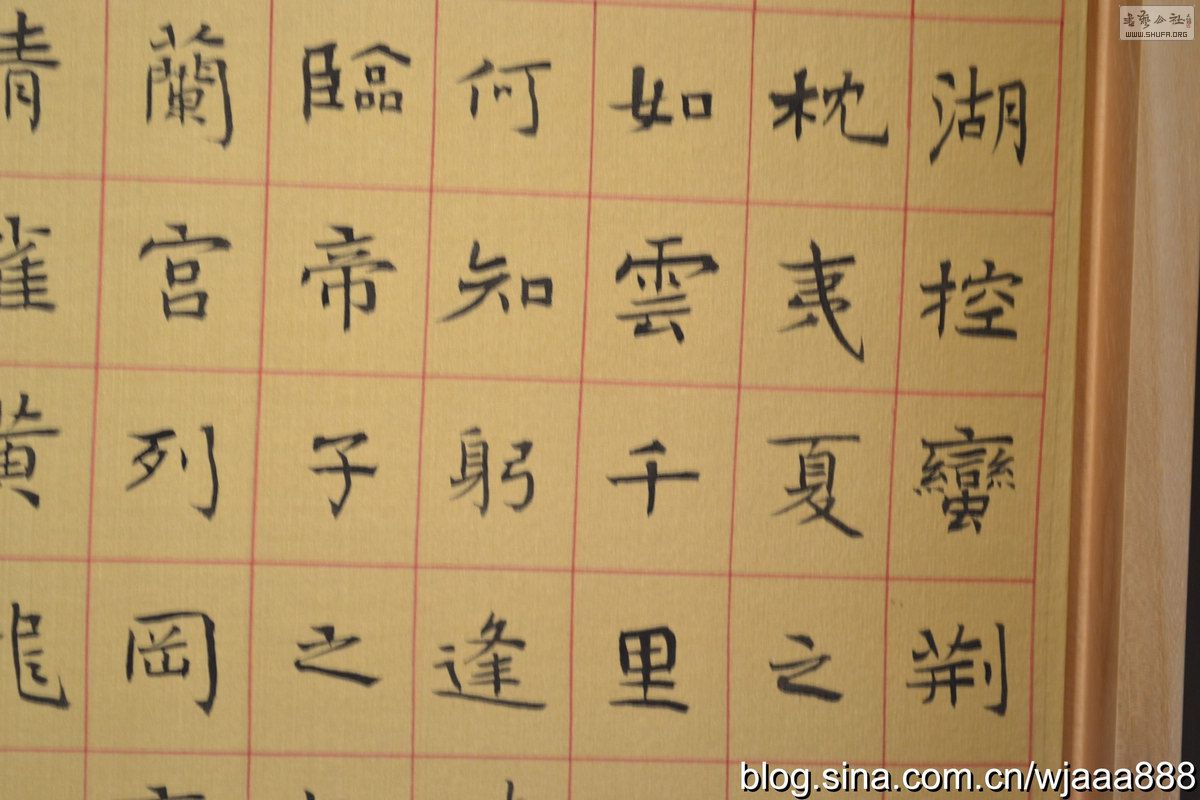 湖控蠻荆
枕夷夏之
如雲千里
何知躬逢
臨帝子之
蘭宫列岡
青雀黄龍
书艺公社
WWW.SHUFA.ORG
blog.sina.com.cn/wjaaa888